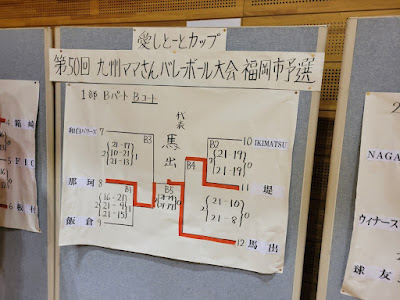 愛しとーとカップ
第50回 九州ママさんバレーボール大会 福岡市予選
1部 Bパート Bコート
代表
馬出
7
B3
2 21-17 1
10-21
21-13
那珂 8
B1
2 16-21 1
21-9
21-15
飯倉 9
B5
B4
B2
10 IKIMATSU
2 21-19 0
21-19
11 堤
2 21-10 0
21-8
12 馬出
4 箱崎
5
6 板付
NAGA
ウィナーズ
球友